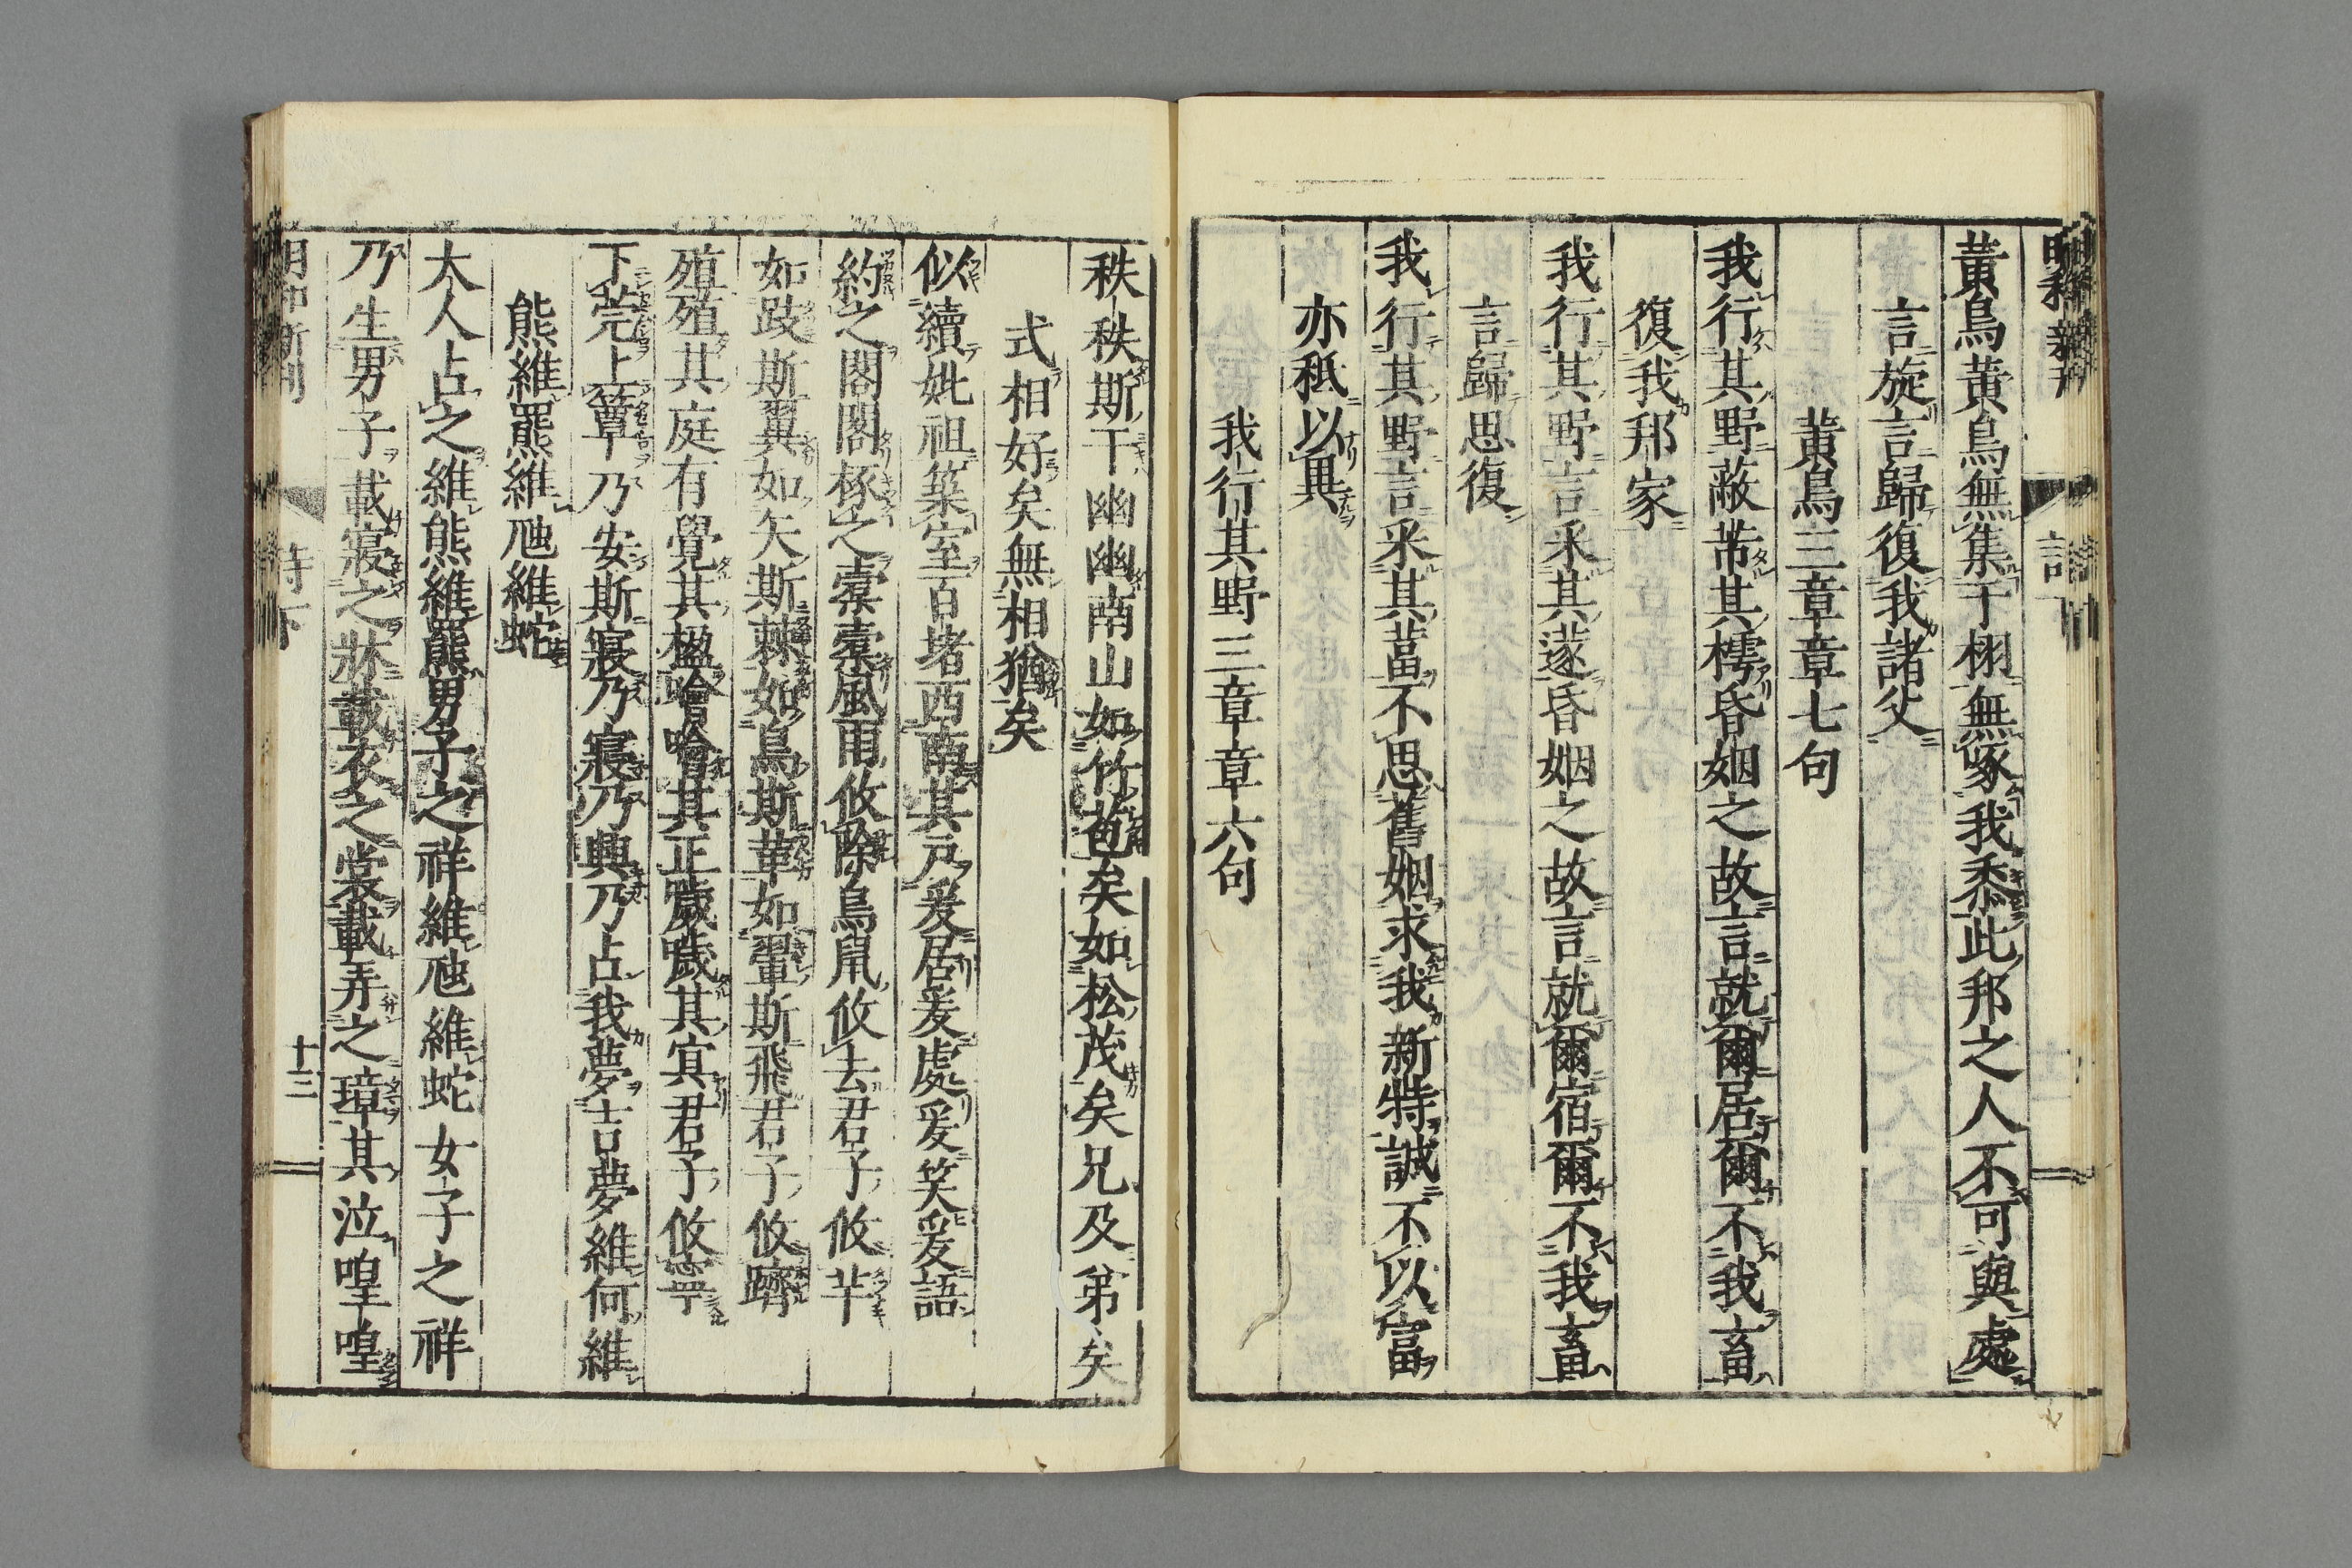 黃鳥黃鳥無集于栩無啄我黍此邦之人不可與處
言旋言歸復我諸父
黃鳥三章章七句
我行其野蔽芾其樗昏姻之故言就爾居爾不我畜
復我邦家
我行其野言采其蓫昏姻之故言就爾宿爾不我畜
言歸思復
我行其野言采其葍不思舊姻求我新特誠不以富
亦秖以異
我行其野三章章六句
秩秩斯干幽幽南山如竹苞矣如松茂矣兄及弟矣
式相好矣無相猶矣
似續妣祖築室百堵西南其戶爰居爰處爰笑爰語
約之閣閣椓之橐橐風雨攸除鳥鼠攸去君子攸芋
如跂斯翼如矢斯棘如鳥斯革如翬斯飛君子攸躋
殖殖其庭有覺其楹噲噲其正噦噦其冥君子攸寧
下莞上簟乃安斯寢乃寢乃興乃占我夢吉夢維何維
熊維羆維虺維蛇
大人占之維熊維羆男子之祥維虺維蛇女子之祥
乃生男子載寢之牀載衣之裳載弄之璋其泣喤喤
十三